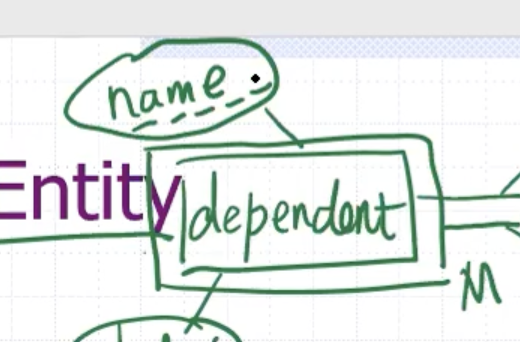 name
Entity
dependent
M